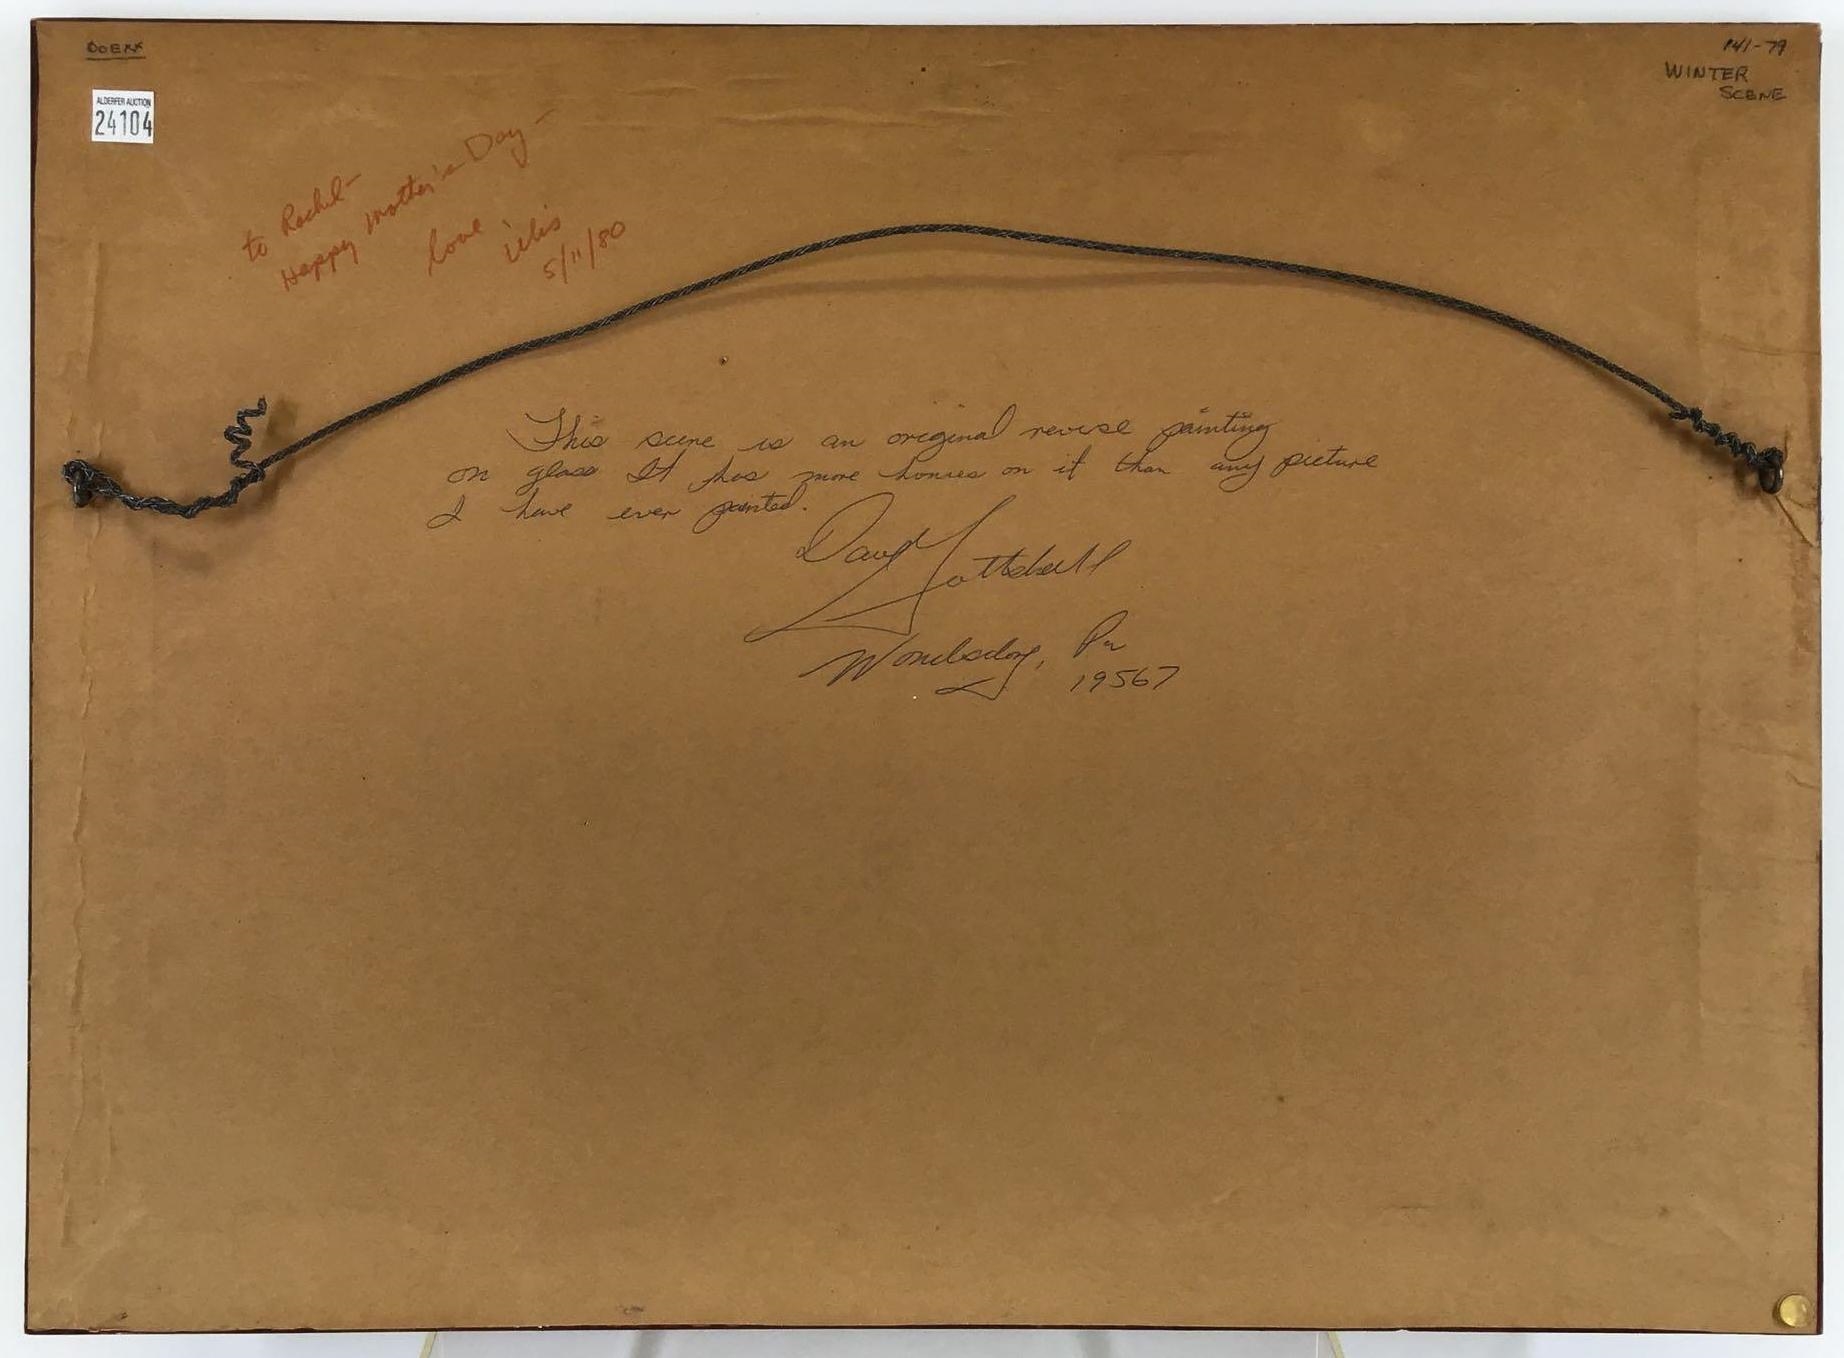 DOEXX
141-79
WINTER
SCENE
ALDERFER AUCTION
24104
to Rachel-
Happy Mother's Day-
love
5/11/80
This scene is an original revise painting
on glass It has more homes on it than any picture
I have ever painted.
David Gottshall
Womelsdorf, Pa
19567